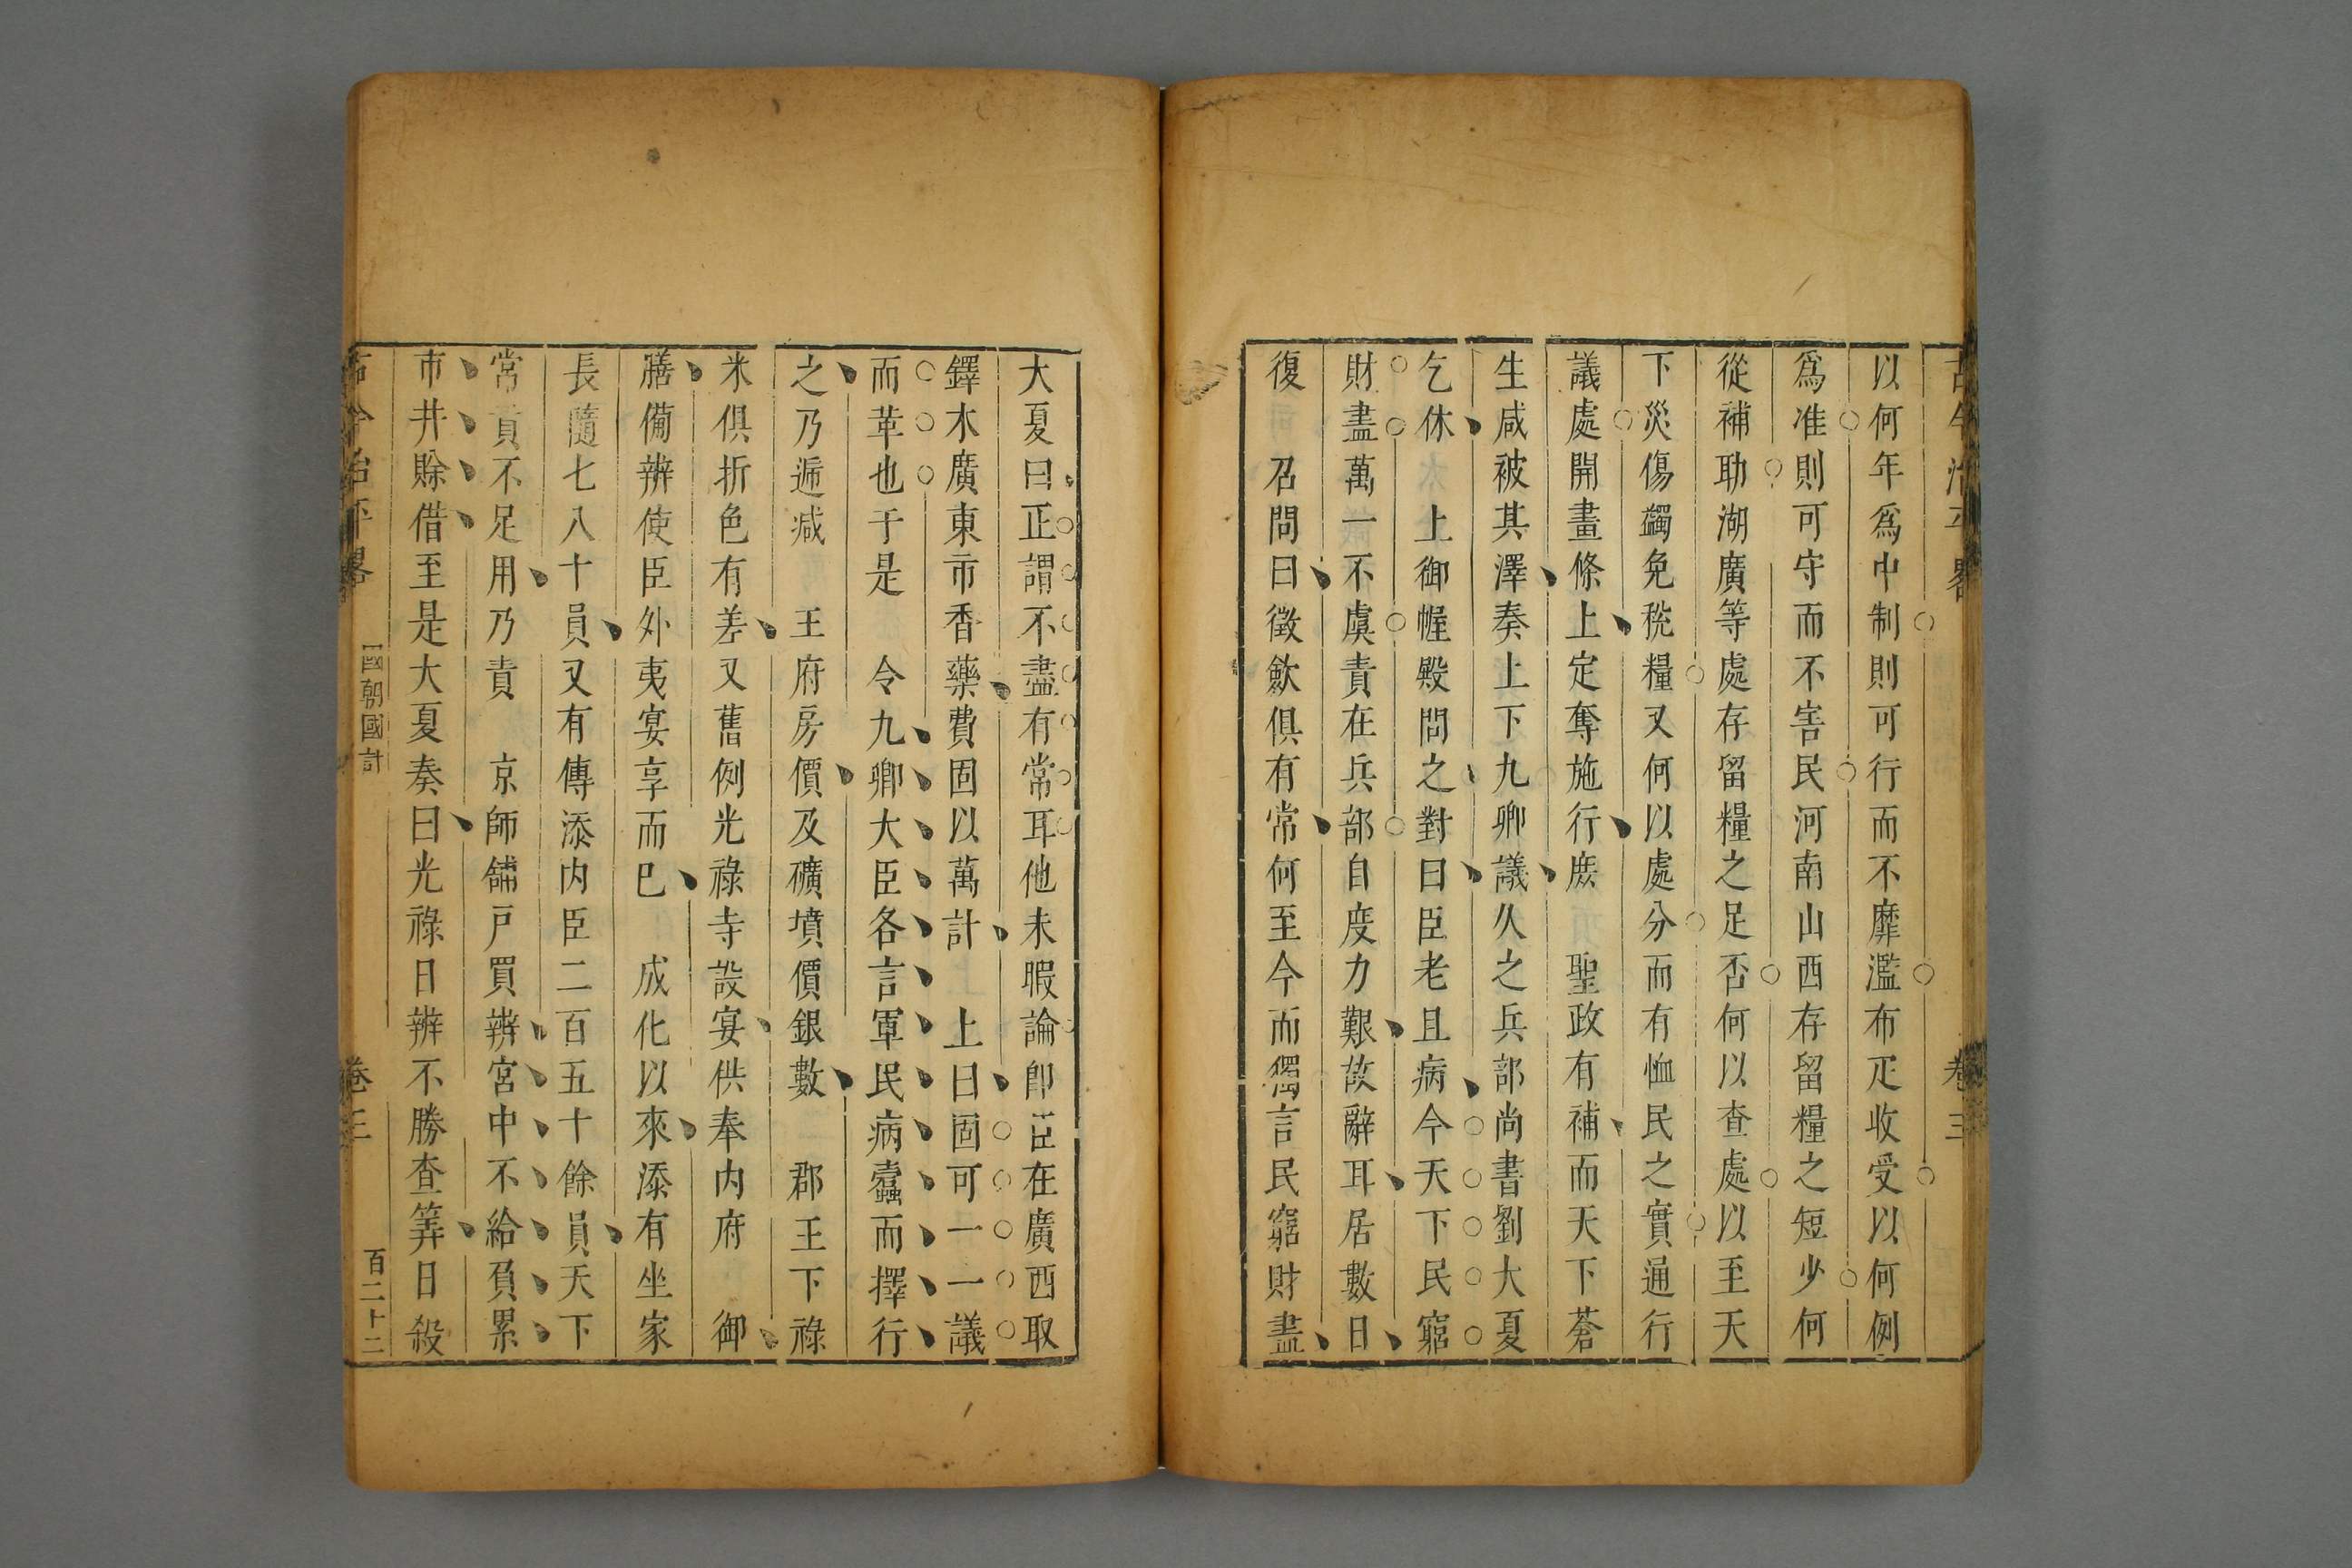 古今治平畧 卷三
以何年爲中制則可行而不靡濫布疋收受以何例
爲准則可守而不害民河南山西存留糧之短少何
從補助湖廣等處存留糧之足否何以查處以至天
下災傷蠲免稅糧又何以處分而有恤民之實通行
議處開畫條上定奪施行庶 聖政有補而天下蒼
生咸被其澤奏上下九卿議久之兵部尚書劉大夏
乞休 上御幄殿問之對曰臣老且病今天下民窮
財盡萬一不虞責在兵部自度力艱故辭耳居數日
復 召問曰徵歛俱有常何至今而獨言民窮財盡
大夏曰正謂不盡有常耳他未暇論卽臣在廣西取
鐸木廣東市香藥費固以萬計 上曰固可一一議
而革也于是 令九卿大臣各言軍民病蠹而擇行
之乃遞减 王府房價及礦墳價銀數 郡王下祿
米俱折色有差又舊例光祿寺設宴供奉内府 御
膳備辨使臣外夷宴享而巳 成化以來添有坐家
長隨七八十員又有傳添内臣二百五十餘員天下
常貢不足用乃責 京師舖戸買辨宮中不給負累
市井賒借至是大夏奏曰光祿日辨不勝查筭日殺
古今治平畧 國朝國計 卷三 百二十二